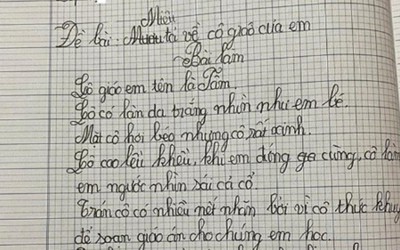 Miêu
Đề bài: Mươu tả về cô giáo của em
Bài làm
Cô giáo em tên là Tấm
Cô có làn da trắng nhìn như em bé.
Mặt cô hơi béo nhưng cô rất xinh.
Cô cao lêu khêu, khi em đứng gần cùng, cô làm
em ngước nhìn sái cả cổ.
Trán cô có nhiều nết nhăn bởi vì cô thức khuy
để soạn giáo án cho chúng em học